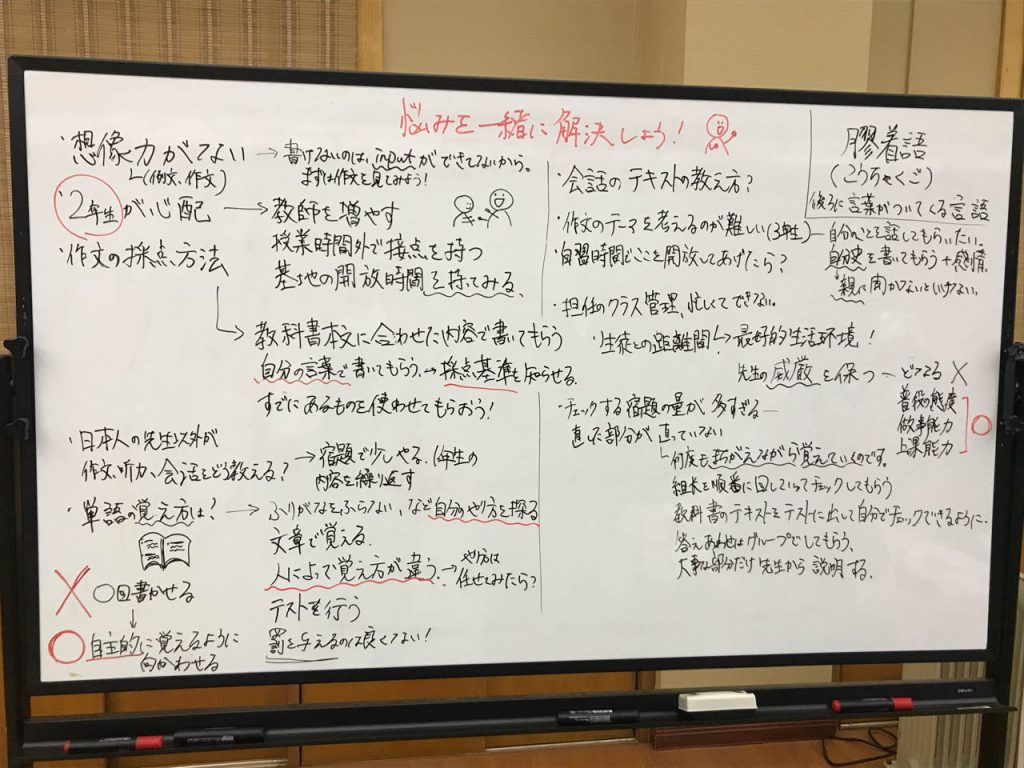 悩みを一緒に解決しよう!
・想像力がない → 書けないのは、inputができてないから。
(例文、作文) まずは作文を見てみよう!
・2年生が心配 → 教師を増やす
授業時間外で接点を持つ
基地の開放時間を持ってみる、
・作文の採点方法
→ 教科書本文に合わせた内容で書いてもらう
自分の言葉で書いてもらう、→ 採点基準を知らせる、
すでにあるものを使わせてもらおう!
・日本人の先生以外が
作文、听力、会話をどう教える?
→ 宿題で少しやる、1年生の
内容を繰り返す
・単語の覚え方は? → ふりがなをふらない、など自分のやり方を探る
文章で覚える、
人によって覚え方が違う、→ やり方は
任せてみたら?
テストを行う
罰を与えるのは良くない!
× ○回書かせる
↓
○ 自主的に覚えるように
向かわせる
・会話のテキストの教え方?
・作文のテーマを考えるのが難しい(3年生)
― 自分のことを話してもらいたい、
自分史を書いてもらう + 感情、
親に聞かないといけない、
・自習時間でここを開放してあげたら?
・担任のクラス管理、忙してできない。
・生徒との距離間! → 最好的生活环境!
先生の威厳を保つ ― どなる ×
普段の態度
做事能力
上课能力
○
・チェックする宿題の量が多すぎる ―
直した部分が直っていない
何度もまちがえながら覚えていくのです。
組長を順番に回していってチェックしてもらう
教科書のテキストをテストに出して自分でチェックできるように、
答えあわせはグループでしてもらう、
大事な部分だけ先生から説明する、
膠着語
(こうちゃくご)
後ろに言葉がついてくる言語
deli